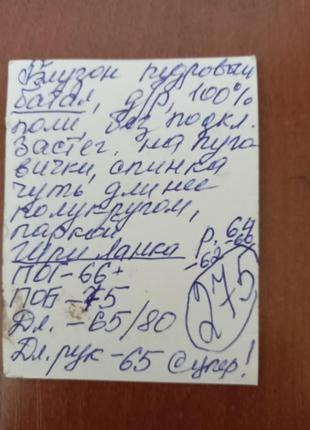 Блузон пудровый
батал, д/р, 100%
поли, без подкл.
Застег. на пуго
вички, спинка
чуть длиннее
полукругом,
паркой
Шри Ланка р. 64
-62-66
ПОГ-66+
ПОБ-75
Дл. -65/80
Дл. рук -65 Супер!
275